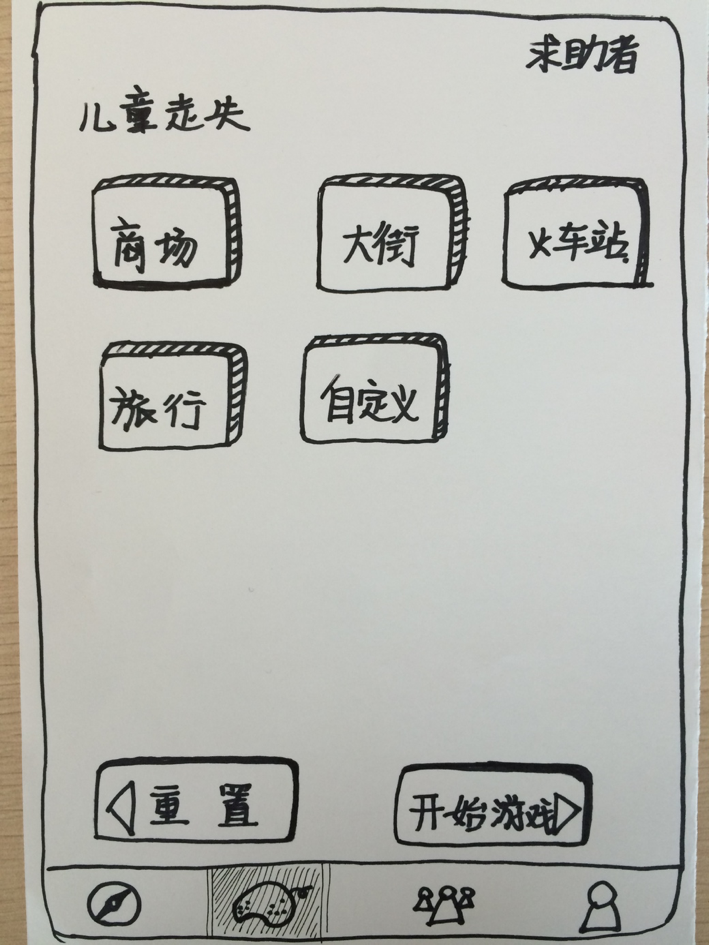 求助者
儿童走失
商场
大街
火车站
旅行
自定义
重置
开始游戏